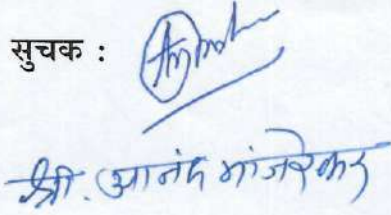 सुचक :
श्री. आनंद मांजरेकर